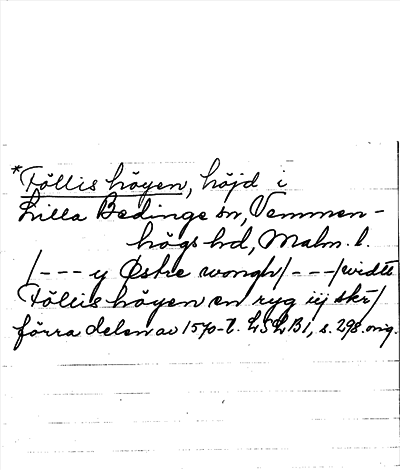 *Töllis höyen, höjd i
Lilla Bedinge sn, Vemmen-
högs hd, Malm. l.
/--- y Østre wongh/ ---/widtt
Töllis höyen en ryg iij skr/
förra delen av 1570-t. LSLB1, s. 298. orig.